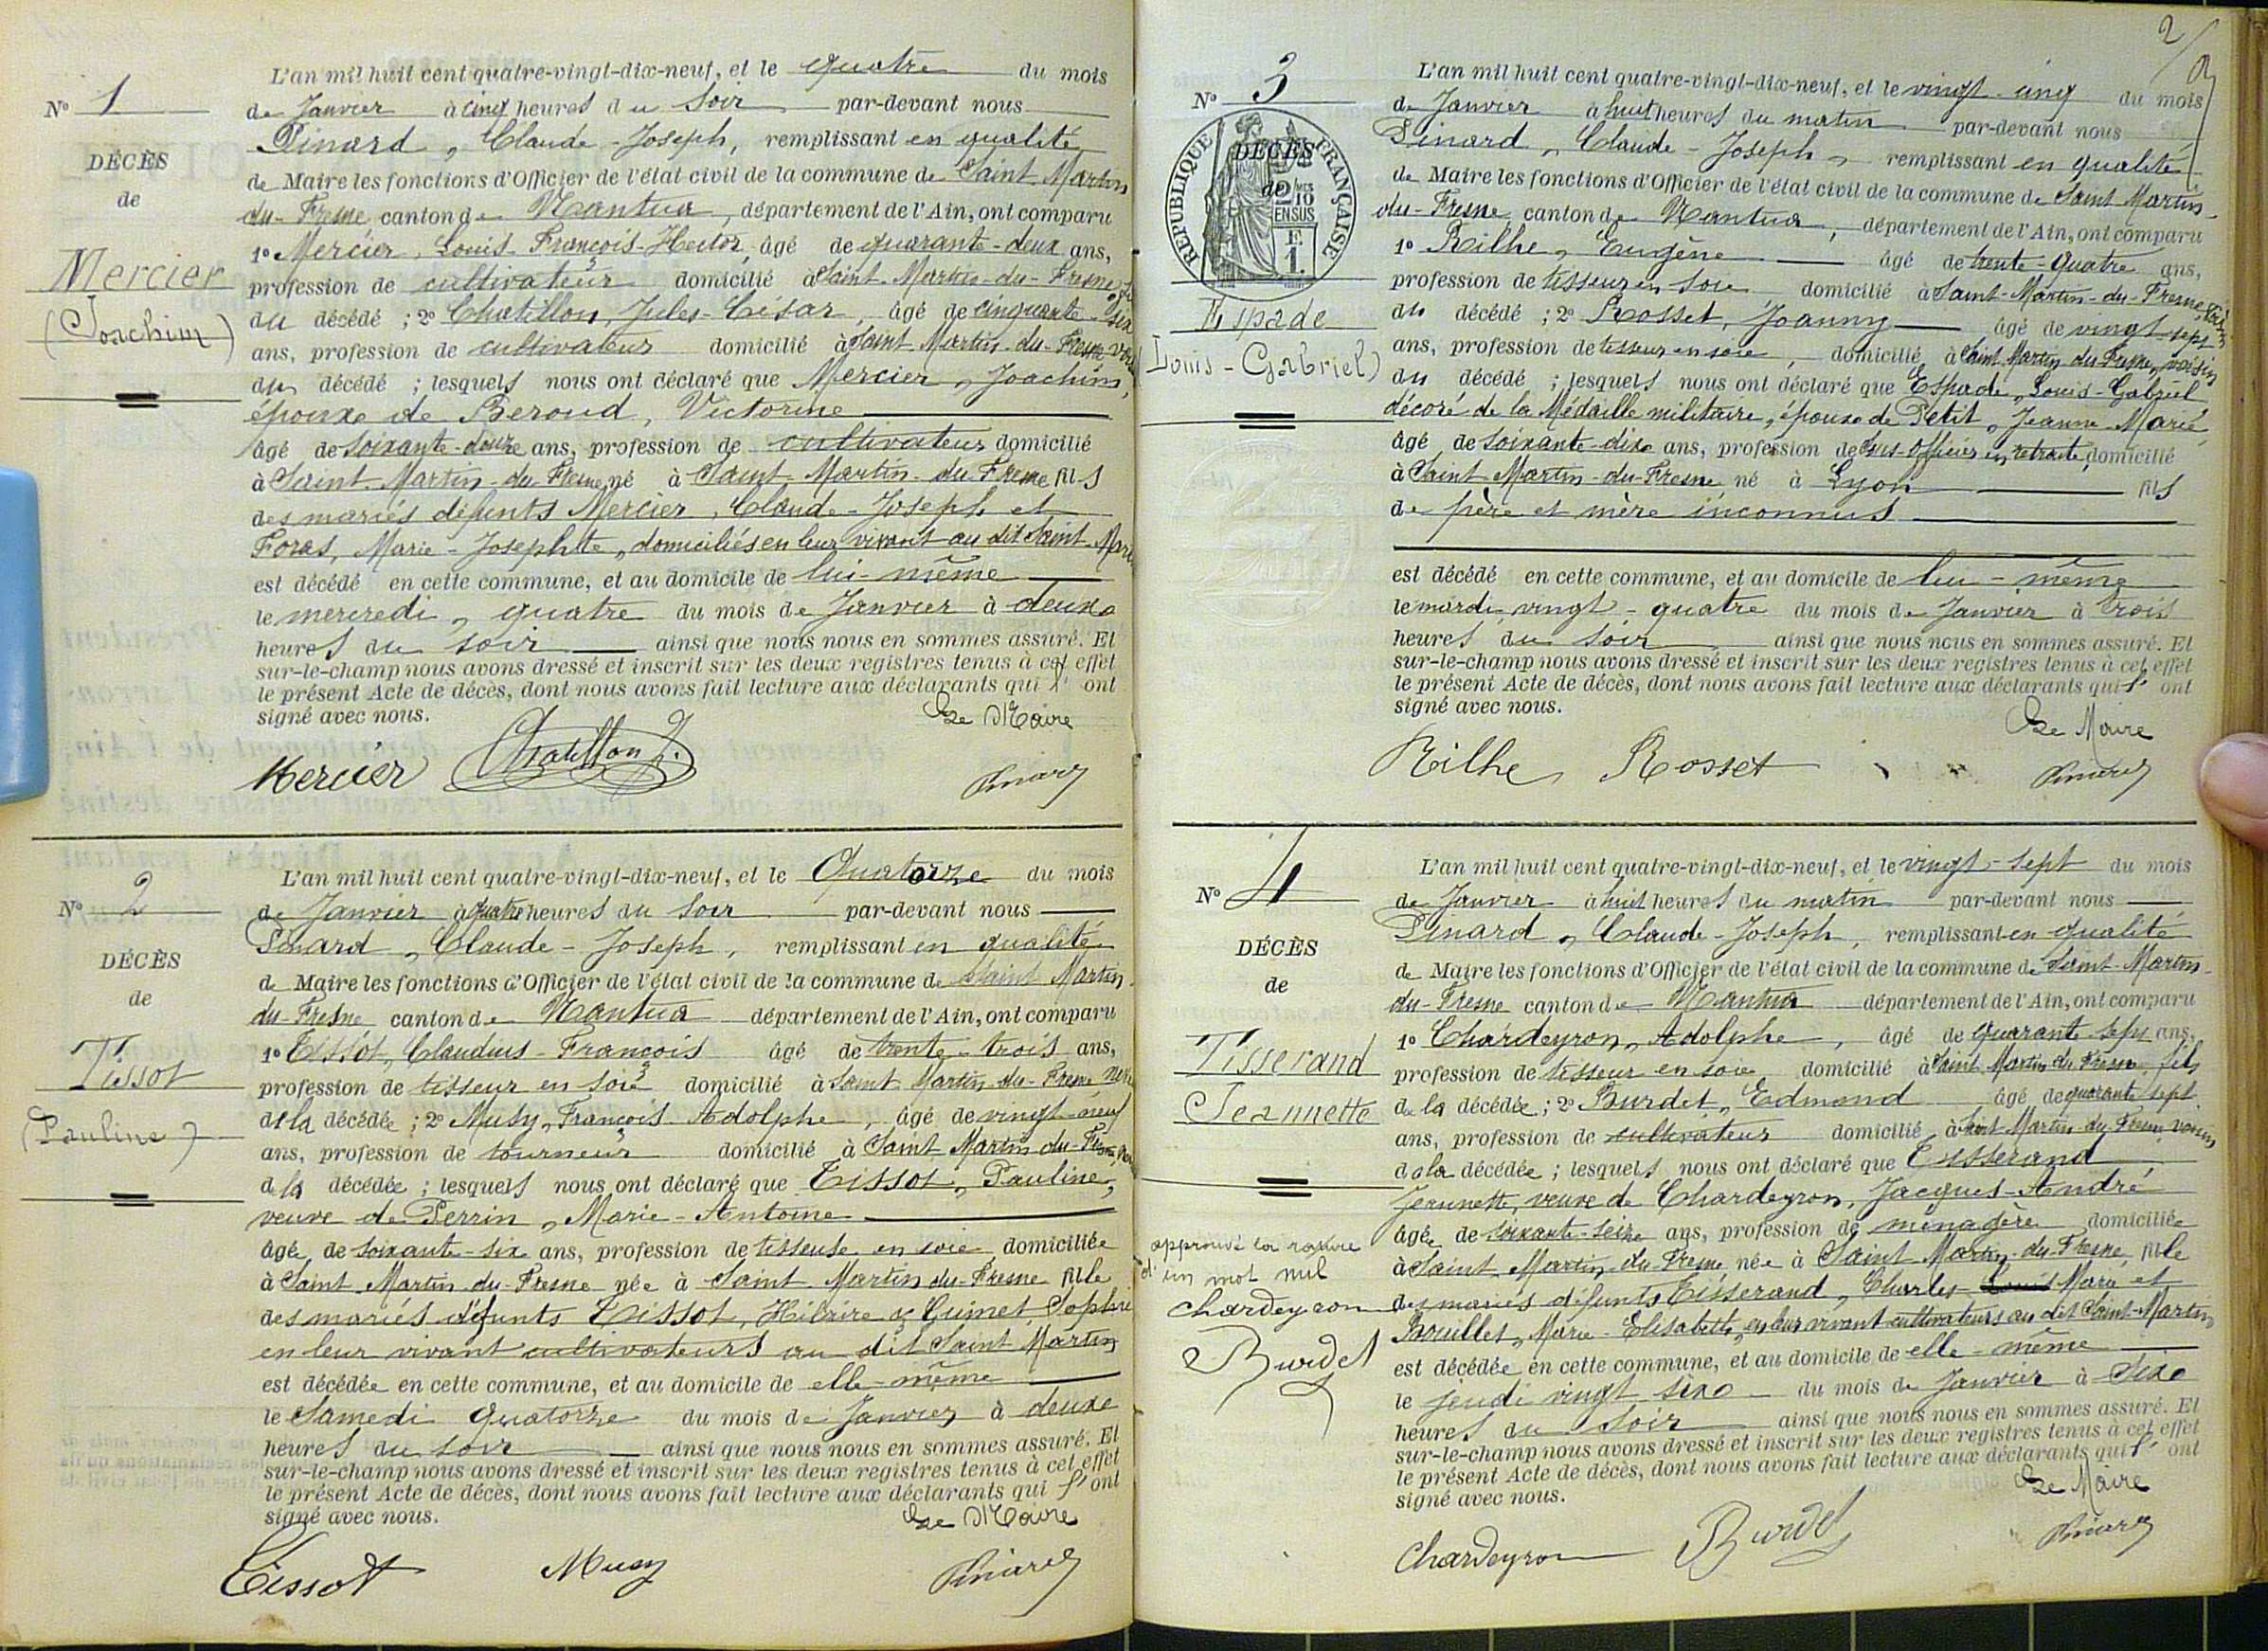 N° 1
DÉCÈS
de
Mercier
(Joachim)
L'an mil huit cent quatre-vingt-dix-neuf, et le quatre du mois
de Janvier à cinq heures du soir par-devant nous
Pinard, Claude-Joseph, remplissant en qualité
de Maire les fonctions d'Officier de l'état civil de la commune de Saint-Martin
du-Fresne canton de Nantua, département de l'Ain, ont comparu
1° Mercier, Louis-François-Hector, âgé de quarante-deux ans,
profession de cultivateur domicilié à Saint-Martin-du-Fresne
du décédé ; 2° Chatillon, Jules-César, âgé de cinquante-six
ans, profession de cultivateur domicilié à Saint Martin-du-Fresne
du décédé ; lesquels nous ont déclaré que Mercier, Joachim,
époux de Beroud, Victorine
âgé de soixante-douze ans, profession de cultivateur domicilié
à Saint-Martin-du-Fresne né à Saint-Martin-du-Fresne fils
des mariés défunts Mercier, Claude-Joseph et
Foras, Marie-Josephte, domiciliés en leur vivant au dit Saint-Mar
est décédé en cette commune, et au domicile de lui-même
le mercredi, quatre du mois de Janvier à deux
heures du soir ainsi que nous nous en sommes assuré. Et
sur-le-champ nous avons dressé et inscrit sur les deux registres tenus à cet effet
le présent Acte de décès, dont nous avons fait lecture aux déclarants qui l'ont
signé avec nous.
Le Maire
Mercier Chatillon J. Pinard
N° 2
DÉCÈS
de
Tissot
(Pauline)
L'an mil huit cent quatre-vingt-dix-neuf, et le Quatorze du mois
de Janvier à quatre heures du soir par-devant nous
Pinard, Claude-Joseph, remplissant en qualité
de Maire les fonctions d'Officier de l'état civil de la commune de Saint Martin
du-Fresne canton de Nantua département de l'Ain, ont comparu
1° Tissot, Claudius-François âgé de trente-trois ans,
profession de tisseur en soie domicilié à Saint Martin-du-Fresne
de la décédée ; 2° Musy, François-Adolphe, âgé de vingt-neuf
ans, profession de tourneur domicilié à Saint Martin-du-Fresne
de la décédée ; lesquels nous ont déclaré que Tissot, Pauline,
veuve de Perrin, Marie-Antoine
âgée de soixante-six ans, profession de tisseuse en soie domiciliée
à Saint Martin-du-Fresne née à Saint Martin du-Fresne fille
des mariés défunts Tissot, Hilaire & Guinet, Sophie
en leur vivant cultivateurs au dit Saint Martin
est décédée en cette commune, et au domicile de elle-même
le Samedi quatorze du mois de Janvier à deux
heures du soir ainsi que nous nous en sommes assuré. Et
sur-le-champ nous avons dressé et inscrit sur les deux registres tenus à cet effet
le présent Acte de décès, dont nous avons fait lecture aux déclarants qui l'ont
signé avec nous.
Le Maire
Tissot Musy Pinard
2
N° 3
DÉCÈS
de
RÉPUBLIQUE FRANÇAISE
2/10
EN SUS
F.
1.
Espade
Louis-Gabriel)
L'an mil huit cent quatre-vingt-dix-neuf, et le vingt-cinq du mois
de Janvier à huit heures du matin par-devant nous
Pinard, Claude-Joseph, remplissant en qualité
de Maire les fonctions d'Officier de l'état civil de la commune de Saint Martin-
du-Fresne canton de Nantua, département de l'Ain, ont comparu
1° Rilhe, Eugène âgé de trente-quatre ans,
profession de tisseur en soie domicilié à Saint-Martin-du-Fresne, voisin
du décédé ; 2° Rosset, Joanny âgé de vingt-sept
ans, profession de tisseur en soie, domicilié à Saint Martin du Fresne, voisin
du décédé ; lesquels nous ont déclaré que Espade, Louis-Gabriel
décoré de la Médaille militaire, époux de Petit, Jeanne-Marie,
âgé de soixante-dix ans, profession de Sous-Officier en retraite, domicilié
à Saint Martin-du-Fresne né à Lyon fils
de père et mère inconnus
est décédé en cette commune, et au domicile de lui-même
le mardi, vingt-quatre du mois de Janvier à trois
heures du soir ainsi que nous nous en sommes assuré. Et
sur-le-champ nous avons dressé et inscrit sur les deux registres tenus à cet effet
le présent Acte de décès, dont nous avons fait lecture aux déclarants qui l'ont
signé avec nous.
Le Maire
Rilhe Rosset Pinard
N° 4
DÉCÈS
de
Tisserand
Jeannette
L'an mil huit cent quatre-vingt-dix-neuf, et le vingt-sept du mois
de Janvier à huit heures du matin par-devant nous
Pinard, Claude-Joseph, remplissant en qualité
de Maire les fonctions d'Officier de l'état civil de la commune de Saint-Martin-
du-Fresne canton de Nantua département de l'Ain, ont comparu
1° Chardeyron, Adolphe, âgé de quarante-sept ans,
profession de tisseur en soie domicilié à Saint Martin du Fresne, fils
de la décédée ; 2° Burdet, Edmond âgé de quarante sept
ans, profession de cultivateur domicilié à Saint Martin du Fresne, voisin
de la décédée ; lesquels nous ont déclaré que Tisserand
Jeannette, veuve de Chardeyron, Jacques-André
âgée de soixante-seize ans, profession de ménagère domiciliée
à Saint Martin du Fresne née à Saint Martin-du-Fresne fille
des mariés défunts Tisserand, Charles-Louis Marie et
Bouillet, Marie-Elisabeth, en leur vivant cultivateurs au dit Saint-Martin
est décédée en cette commune, et au domicile de elle-même
le jeudi vingt six du mois de Janvier à Six
heures du soir ainsi que nous nous en sommes assuré. Et
sur-le-champ nous avons dressé et inscrit sur les deux registres tenus à cet effet
le présent Acte de décès, dont nous avons fait lecture aux déclarants qui l'ont
signé avec nous.
Le Maire
approuvé la rature
d'un mot nul
Chardeyron
Burdet
Chardeyron Burdet Pinard